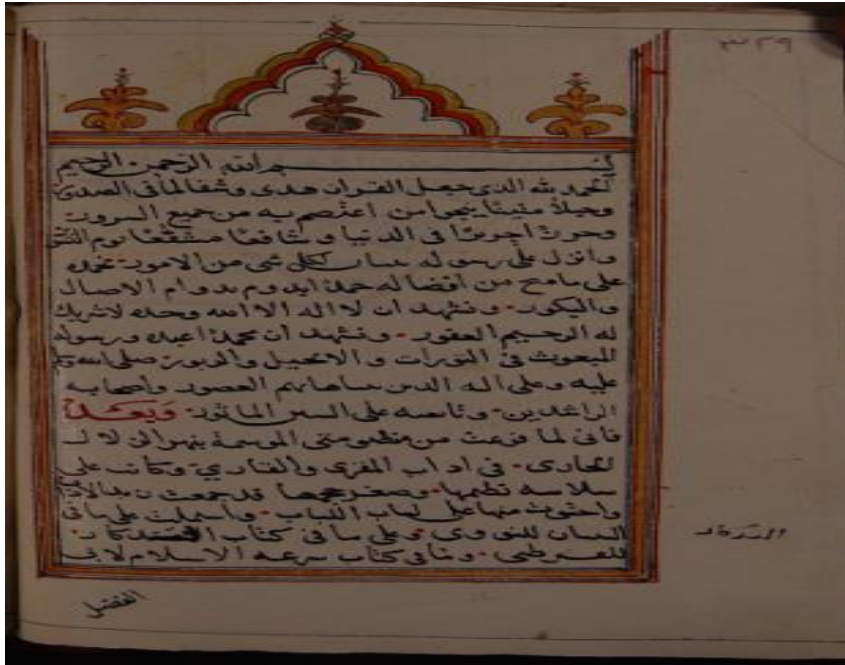 ٣٢٩
بسم الله الرحمن الرحيم
الحمد لله الذي جعل القران هدى وشفا لما في الصدور
وحبلا متينا ينجوا من اعتصم به من جميع السرور
وحرزا في الدنيا و شافعا مشفعا يوم النشور
وانزل على رسوله بيان لكل شي من الامور نحمده
على ما منح من افضاله حمدا يدوم بدوام الاصال
والبكور ونشهد ان لا اله الا الله وحده لا شريك
له الرحيم الغفور ونشهد ان محمدا عبده ورسوله
المبعوث في التورات و الانجيل والزبور صلى الله
عليه وعلى اله الذين العصور واصحابه
الراشدين وتابعيه على السنن الماثور وبعد
فاني لما فرغت من منظومتي الموسمة بنهر الزلال
الجاري في اداب المقري والقاري وكانت على
سلاسة نظمها وصغر حجمها قد جمعت
واحتوت منها على لباب اللباب واشتملت على ما في
التبيان للنووي وعلى ما في كتاب
للقرطبي وما في كتاب شرعة الاسلام
الفضل